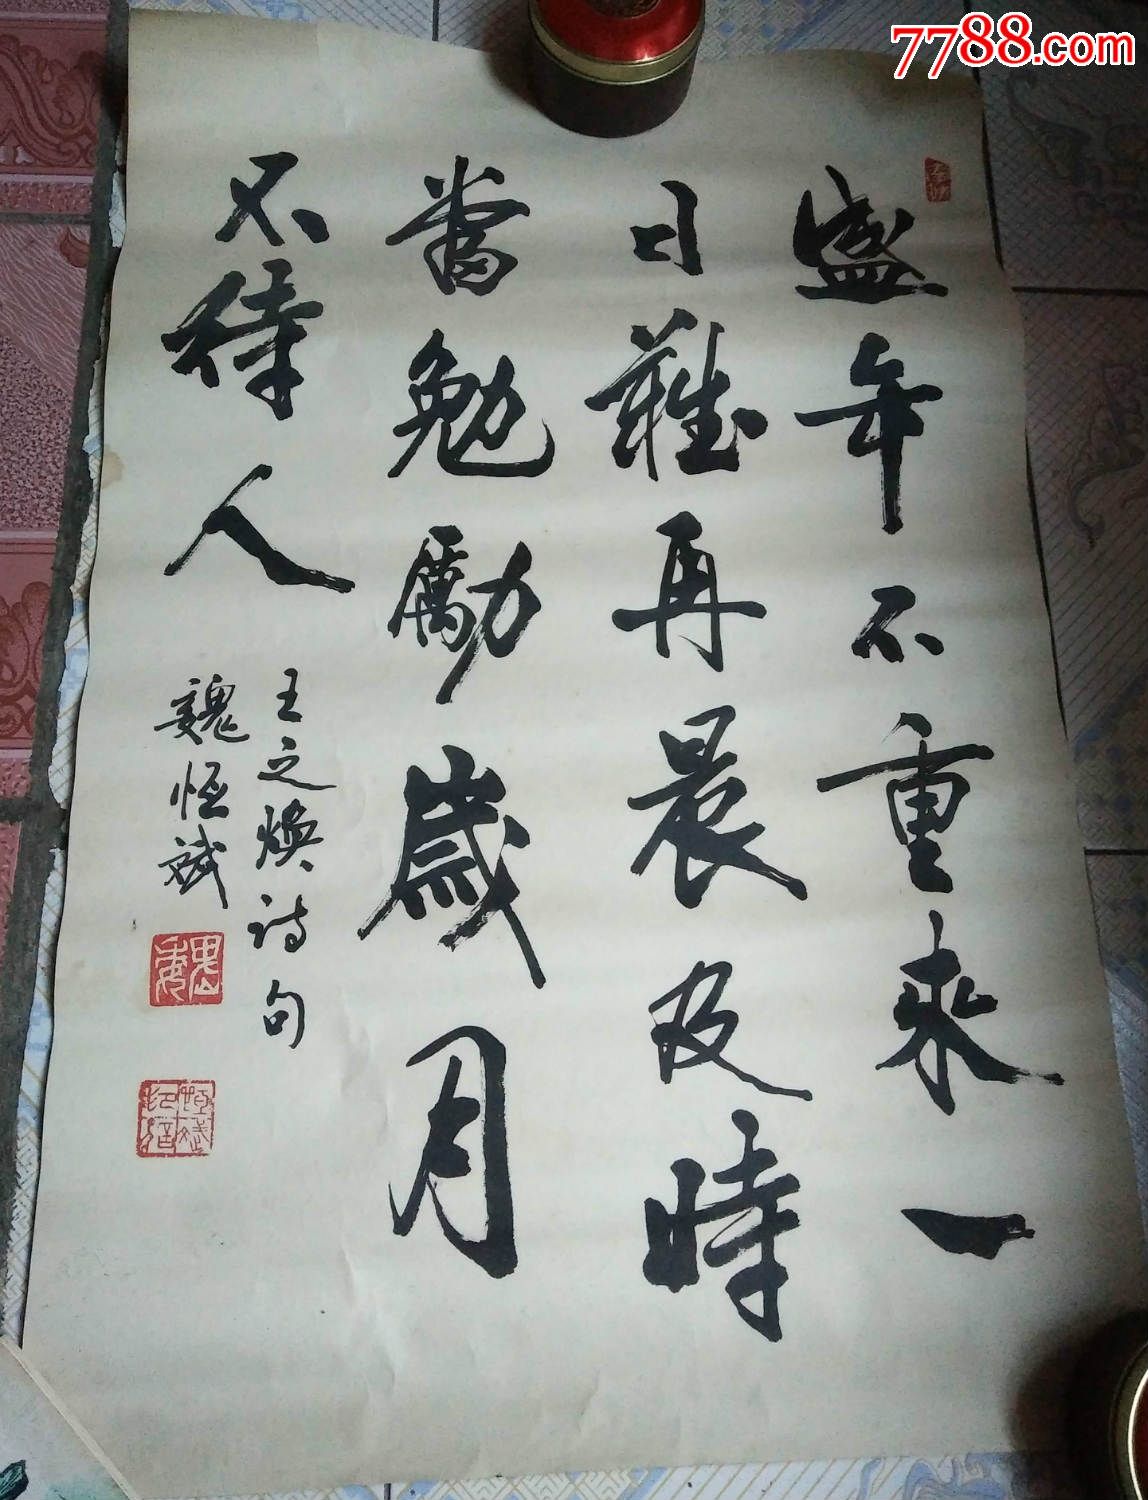 盛年不重来一
日難再晨及时
當勉勵歲月
不待人
王之焕诗句
魏恒斌
魏
恒斌印信
7788.com